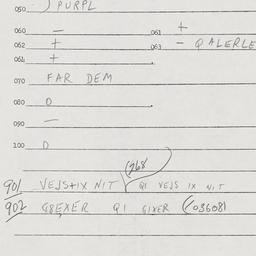 050 ) PURPL
060 — 061 +
062 + 063 — QALERLE
064 +
070 FAR DEM
080 0
090 —
100 0
(768
901 VEJS+IX NIT QI VEJS IX NIT
902 QI GIXER (036081